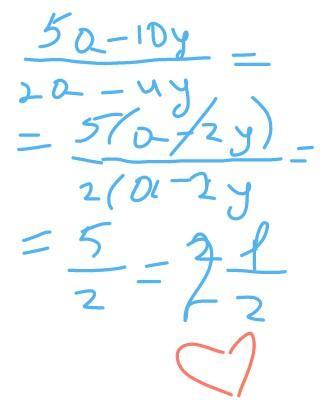 5a-10y
2a-4y =
= 5(a-2y)
2(a-2y =
= 5/2 = 2 1/2